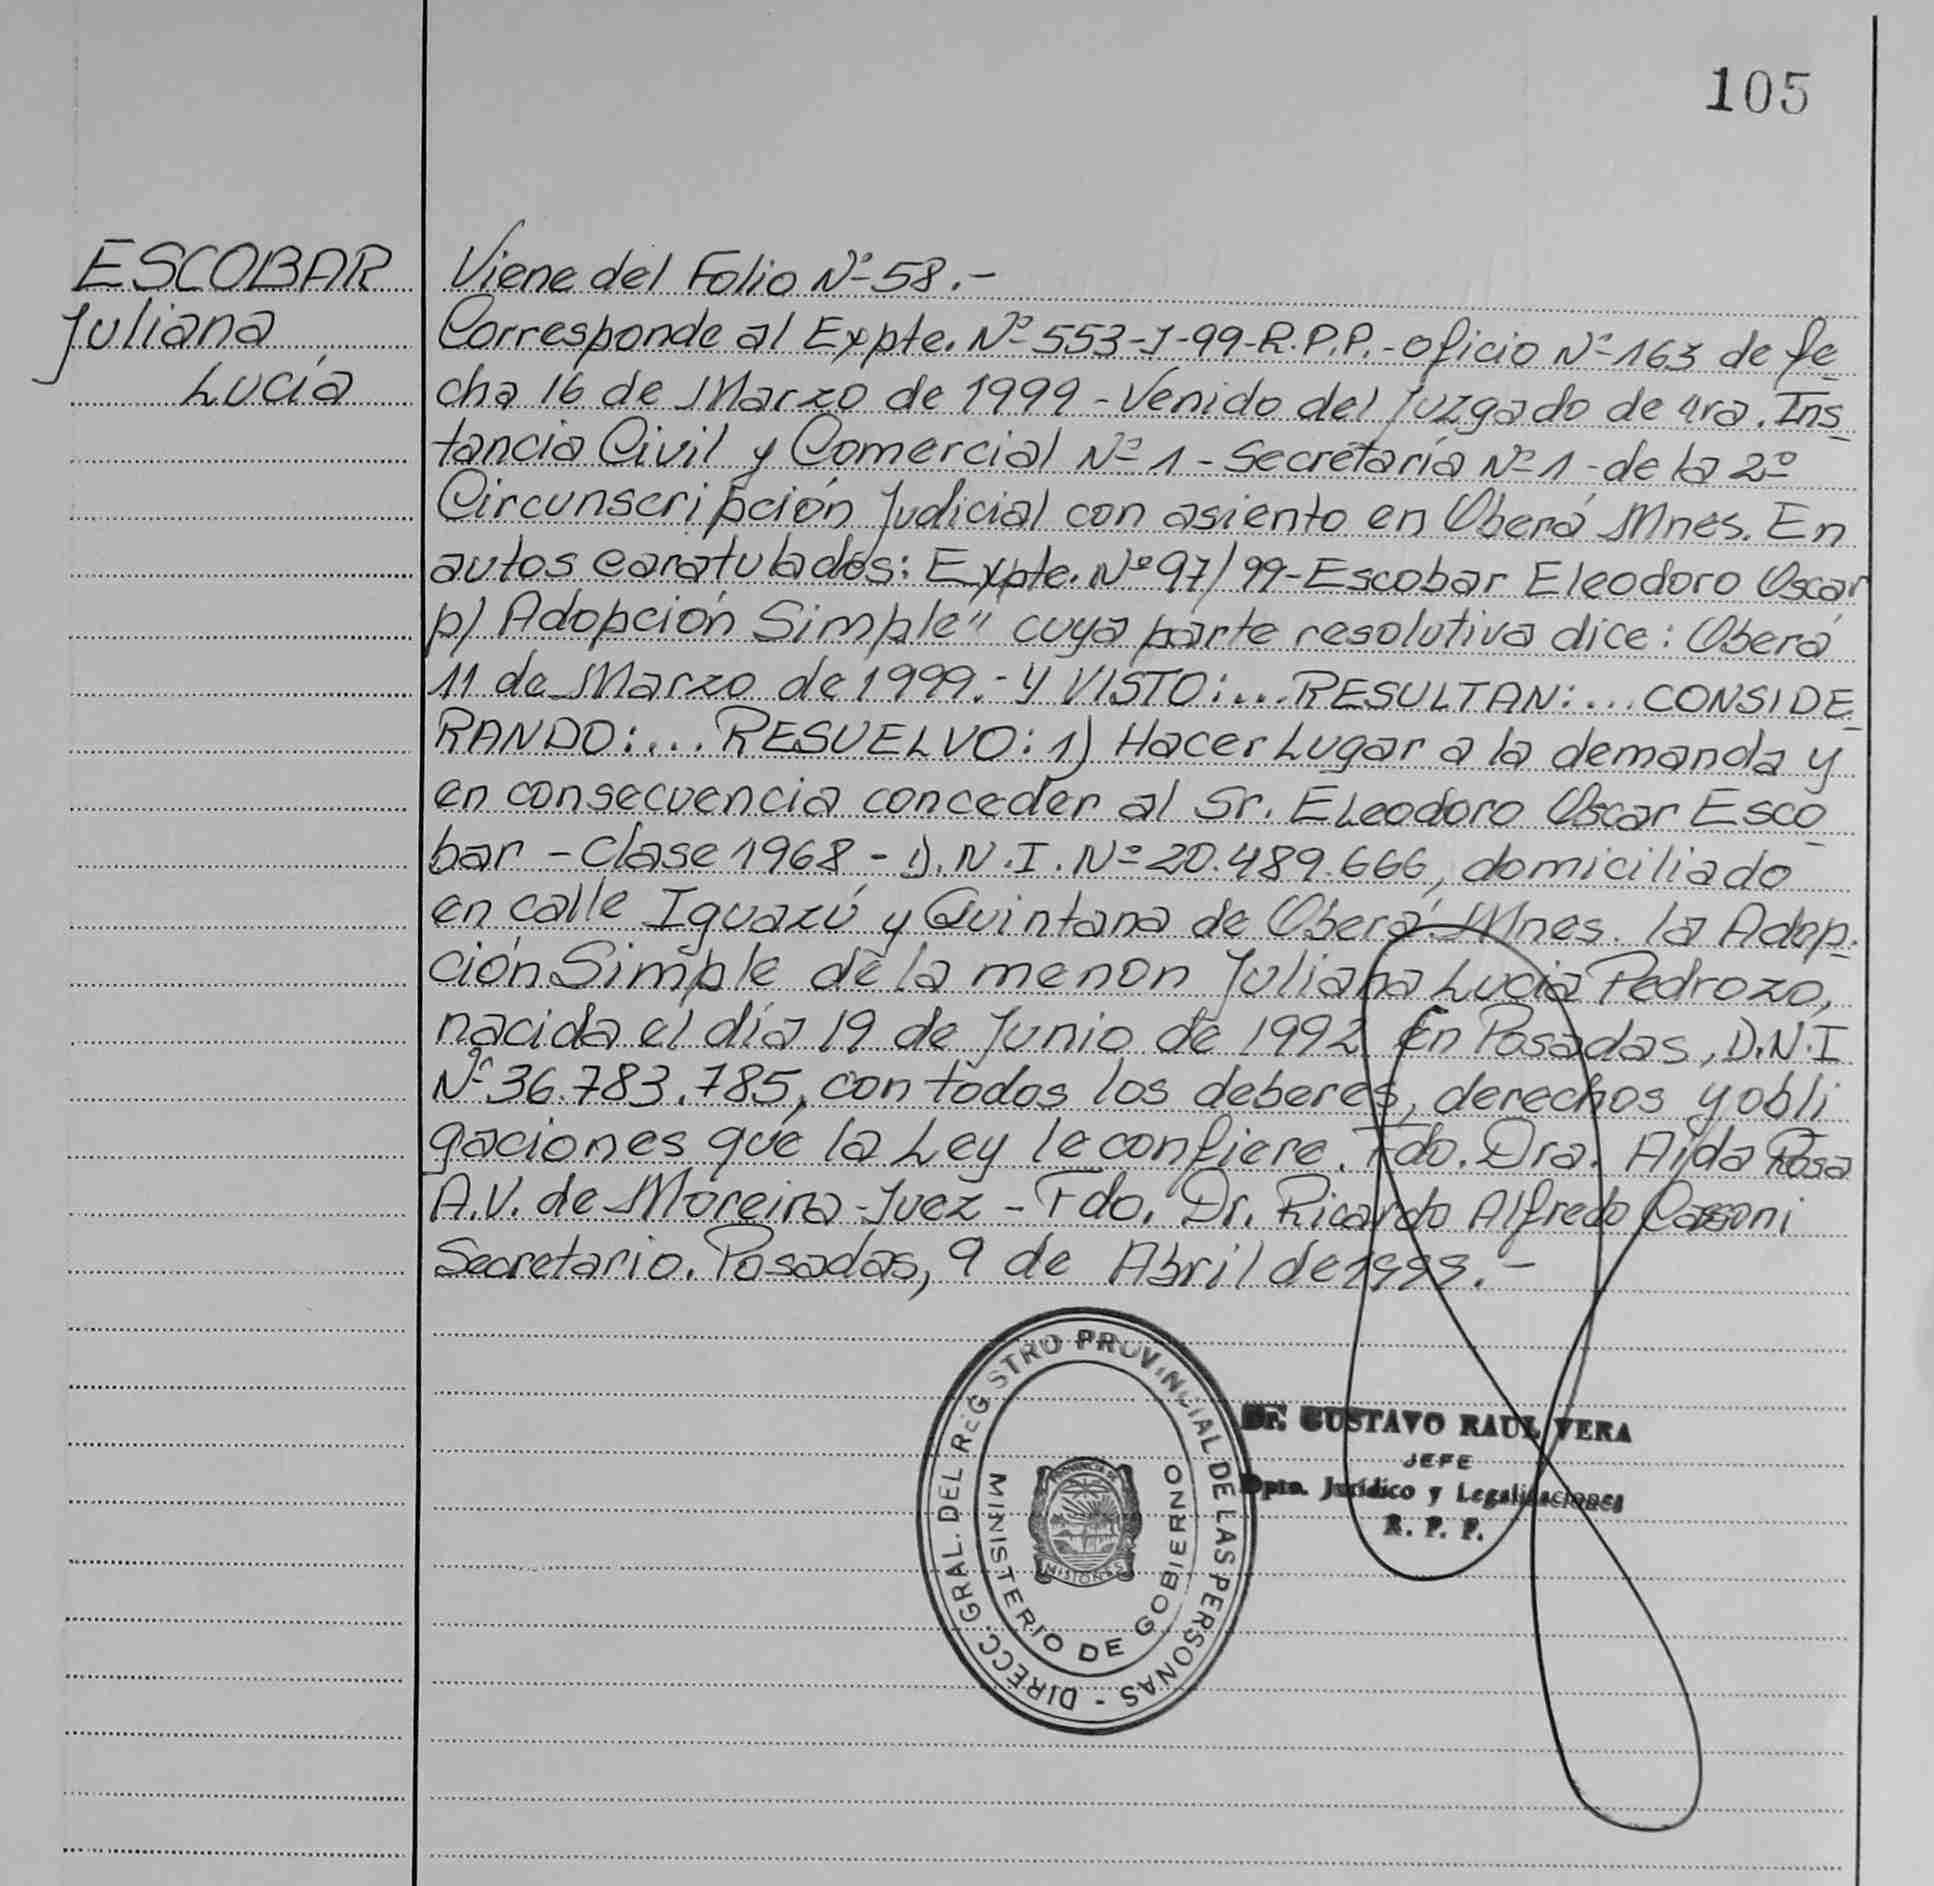 105
ESCOBAR
Juliana
Lucía
Viene del Folio Nº 58.-
Corresponde al Expte. Nº 553-J-99-R.P.P.-oficio Nº 163 de fe
cha 16 de Marzo de 1999 - Venido del Juzgado de 1ra. Ins
tancia Civil y Comercial Nº 1 - Secretaría Nº 1 - de la 2º
Circunscripción Judicial con asiento en Oberá Mnes. En
autos caratulados: Expte. Nº 97/99-Escobar Eleodoro Oscar
p/ Adopción Simple" cuya parte resolutiva dice: Oberá
11 de Marzo de 1999.- Y VISTO:... RESULTAN:... CONSIDE
RANDO:... RESUELVO: 1) Hacer Lugar a la demanda y
en consecuencia conceder al Sr. ELeodoro Oscar Esco
bar - Clase 1968 - D.N.I. Nº 20.489.666, domiciliado
en calle Iguazú y Quintana de Oberá Mnes. la Adop
ción Simple de la menor Juliana Lucia Pedrozo,
nacida el día 19 de Junio de 1992 en Posadas, D.N.I
Nº 36.783.785, con todos los deberes, derechos y obli
gaciones que la Ley le confiere. Fdo. Dra. Aida Rosa
A.V. de Moreira - Juez - Fdo. Dr. Ricardo Alfredo Cassoni
Secretario. Posadas, 9 de Abril de 1999.-
DIRECC. GRAL. DEL REGISTRO PROVINCIAL DE LAS PERSONAS -
MINISTERIO DE GOBIERNO
PROVINCIA DE
MISIONES
Dr. GUSTAVO RAUL VERA
JEFE
Dpto. Jurídico y Legalizaciones
R. P. P.